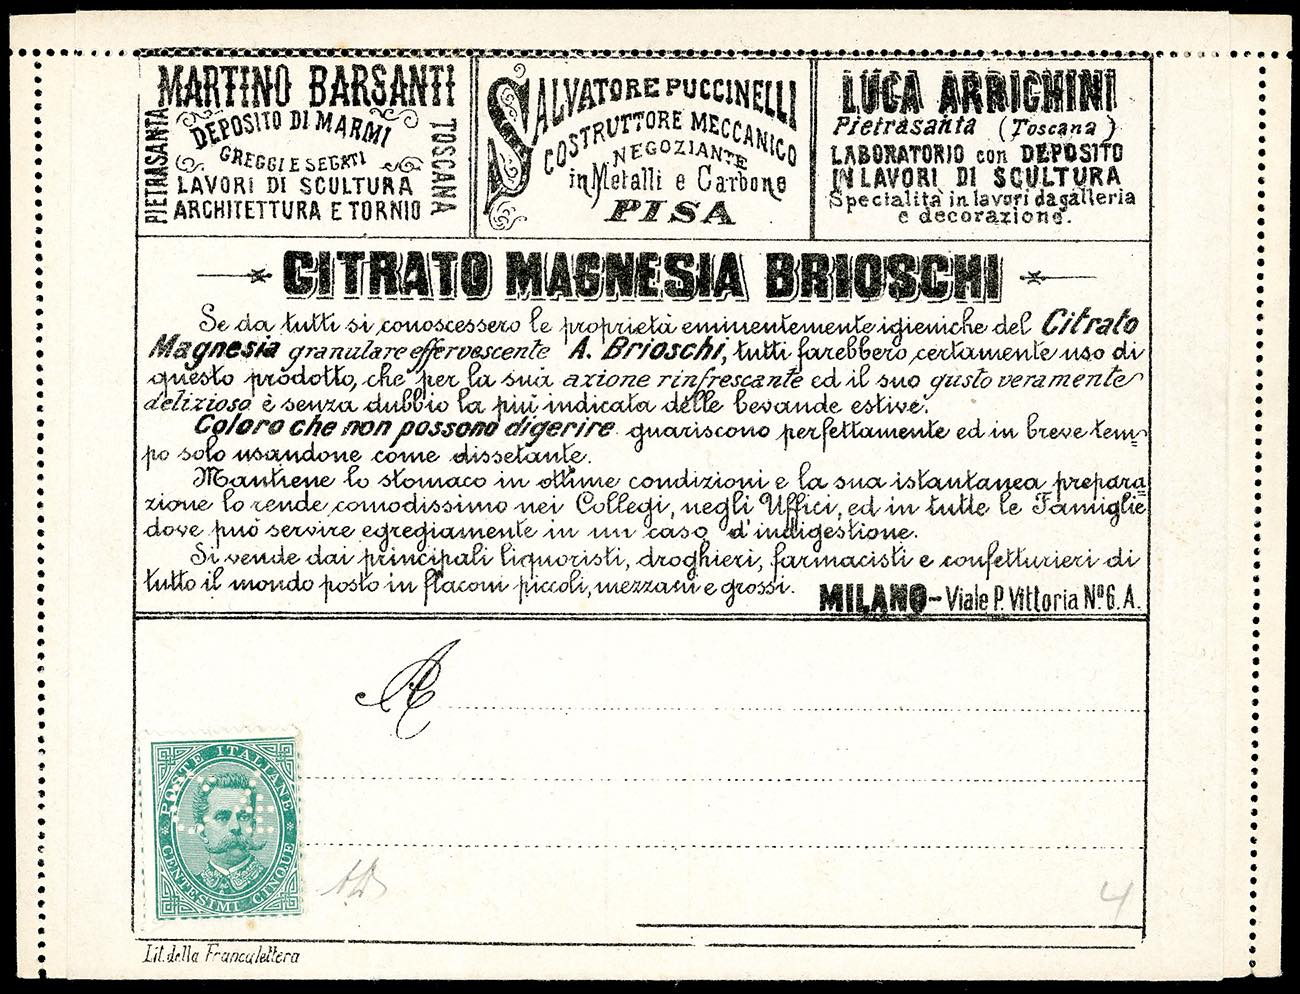 MARTINO BARSANTI
PIETRASANTA
DEPOSITO DI MARMI
GREGGI E SEGATI
LAVORI DI SCULTURA
ARCHITETTURA E TORNIO
TOSCANA
SALVATORE PUCCINELLI
COSTRUTTORE MECCANICO
NEGOZIANTE
in Metalli e Carbone
PISA
LUCA ARRIGHINI
Pietrasanta (Toscana)
LABORATORIO con DEPOSITO
IN LAVORI DI SCULTURA
Specialità in lavori da galleria
e decorazione.
CITRATO MAGNESIA BRIOSCHI
Se da tutti si conoscessero le proprietà eminentemente igieniche del Citrato
Magnesia granulare effervescente A. Brioschi, tutti farebbero certamente uso di
questo prodotto, che per la sua azione rinfrescante ed il suo gusto veramente
delizioso è senza dubbio la più indicata delle bevande estive.
Coloro che non possono digerire guariscono perfettamente ed in breve tem=
po solo usandone come dissetante.
Mantiene lo stomaco in ottime condizioni e la sua istantanea prepara=
zione lo rende comodissimo nei Collegi, negli Uffici, ed in tutte le Famiglie
dove può servire egregiamente in un caso d'indigestione.
Si vende dai principali liquoristi, droghieri, farmacisti e confetturieri di
tutto il mondo posto in flaconi piccoli, mezzani e grossi.
MILANO - Viale P. Vittoria Nº 6. A.
A
POSTE ITALIANE
CENTESIMI CINQUE
4
Lit. della Francalettera